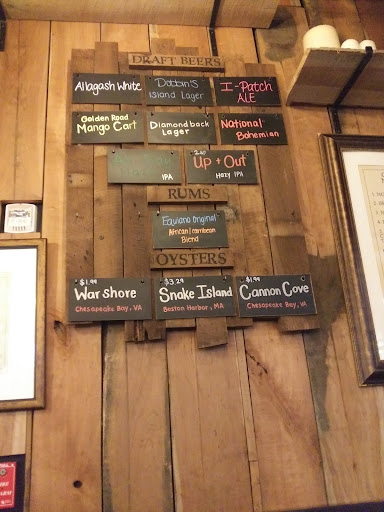 DRAFT BEERS
Allagash White
Dobbin's
Island Lager
I-Patch
ALE
Golden Road
Mango Cart
Diamondback
Lager
National
Bohemian
IPA
Up + Out
Hazy IPA
RUMS
Equiano Original
African/Carribean
Blend
OYSTERS
$1.99
War Shore
Chesapeake Bay, VA
$3.29
Snake Island
Boston Harbor, MA
$1.99
Cannon Cove
Chesapeake Bay, VA